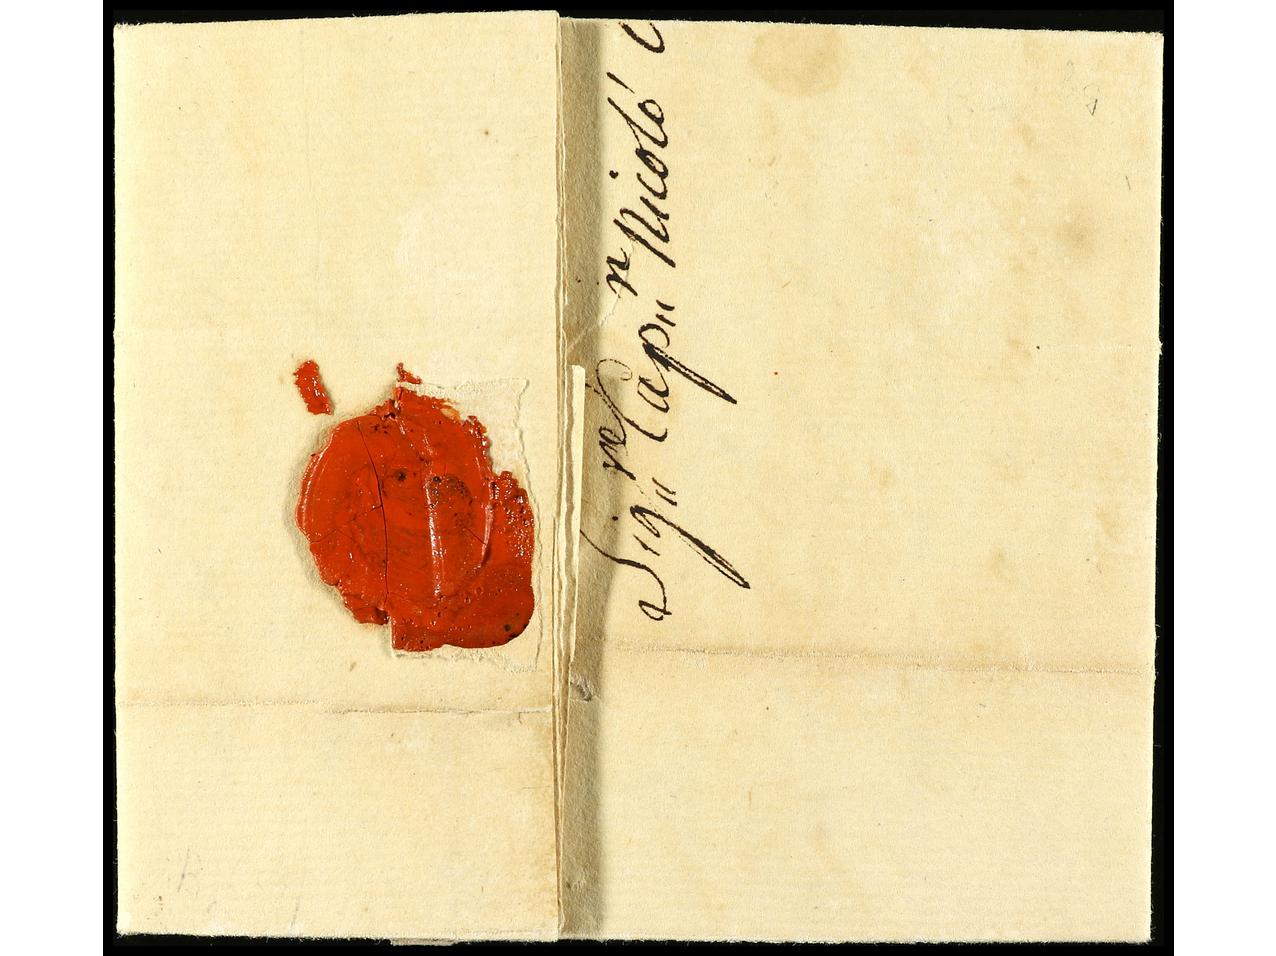 Sig:re Cap:n Nicoló